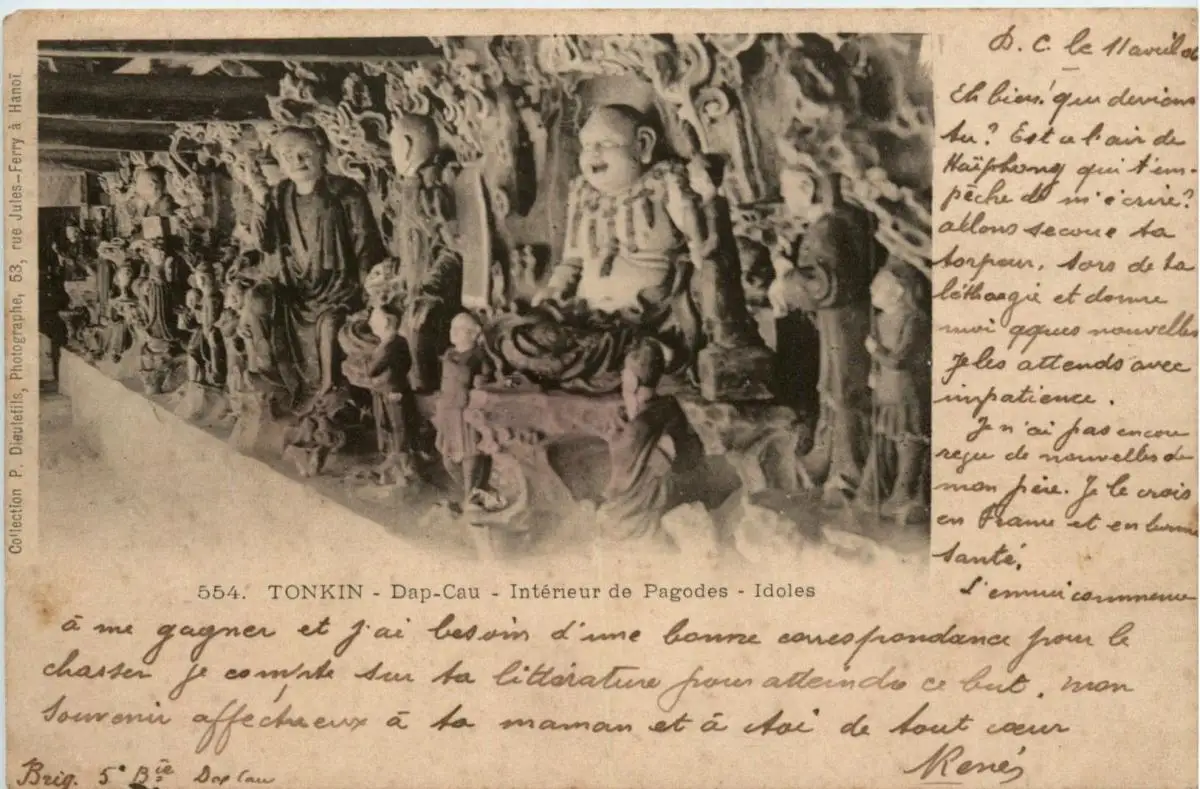 Collection P. Dieulefils, Photographe, 53, rue Jules-Ferry à Hanoï
D. C. le 11 avril
Eh bien! que deviens
tu? Est ce l'air de
Haïphong qui t'em-
pêche de m'écrire?
allons secoue ta
torpeur, sors de ta
léthargie et donne
moi qques nouvelles
Je les attends avec
impatience.
Je n'ai pas encore
reçu de nouvelles de
mon père. Je le crois
en France et en bonne
santé.
L'ennui commence
554. TONKIN - Dap-Cau - Intérieur de Pagodes - Idoles
à me gagner et j'ai besoin d'une bonne correspondance pour le
chasser je compte sur ta littérature pour atteindre ce but. mon
souvenir affectueux à ta maman et à toi de tout cœur
René
Brig. 5e Bie Dap Cau